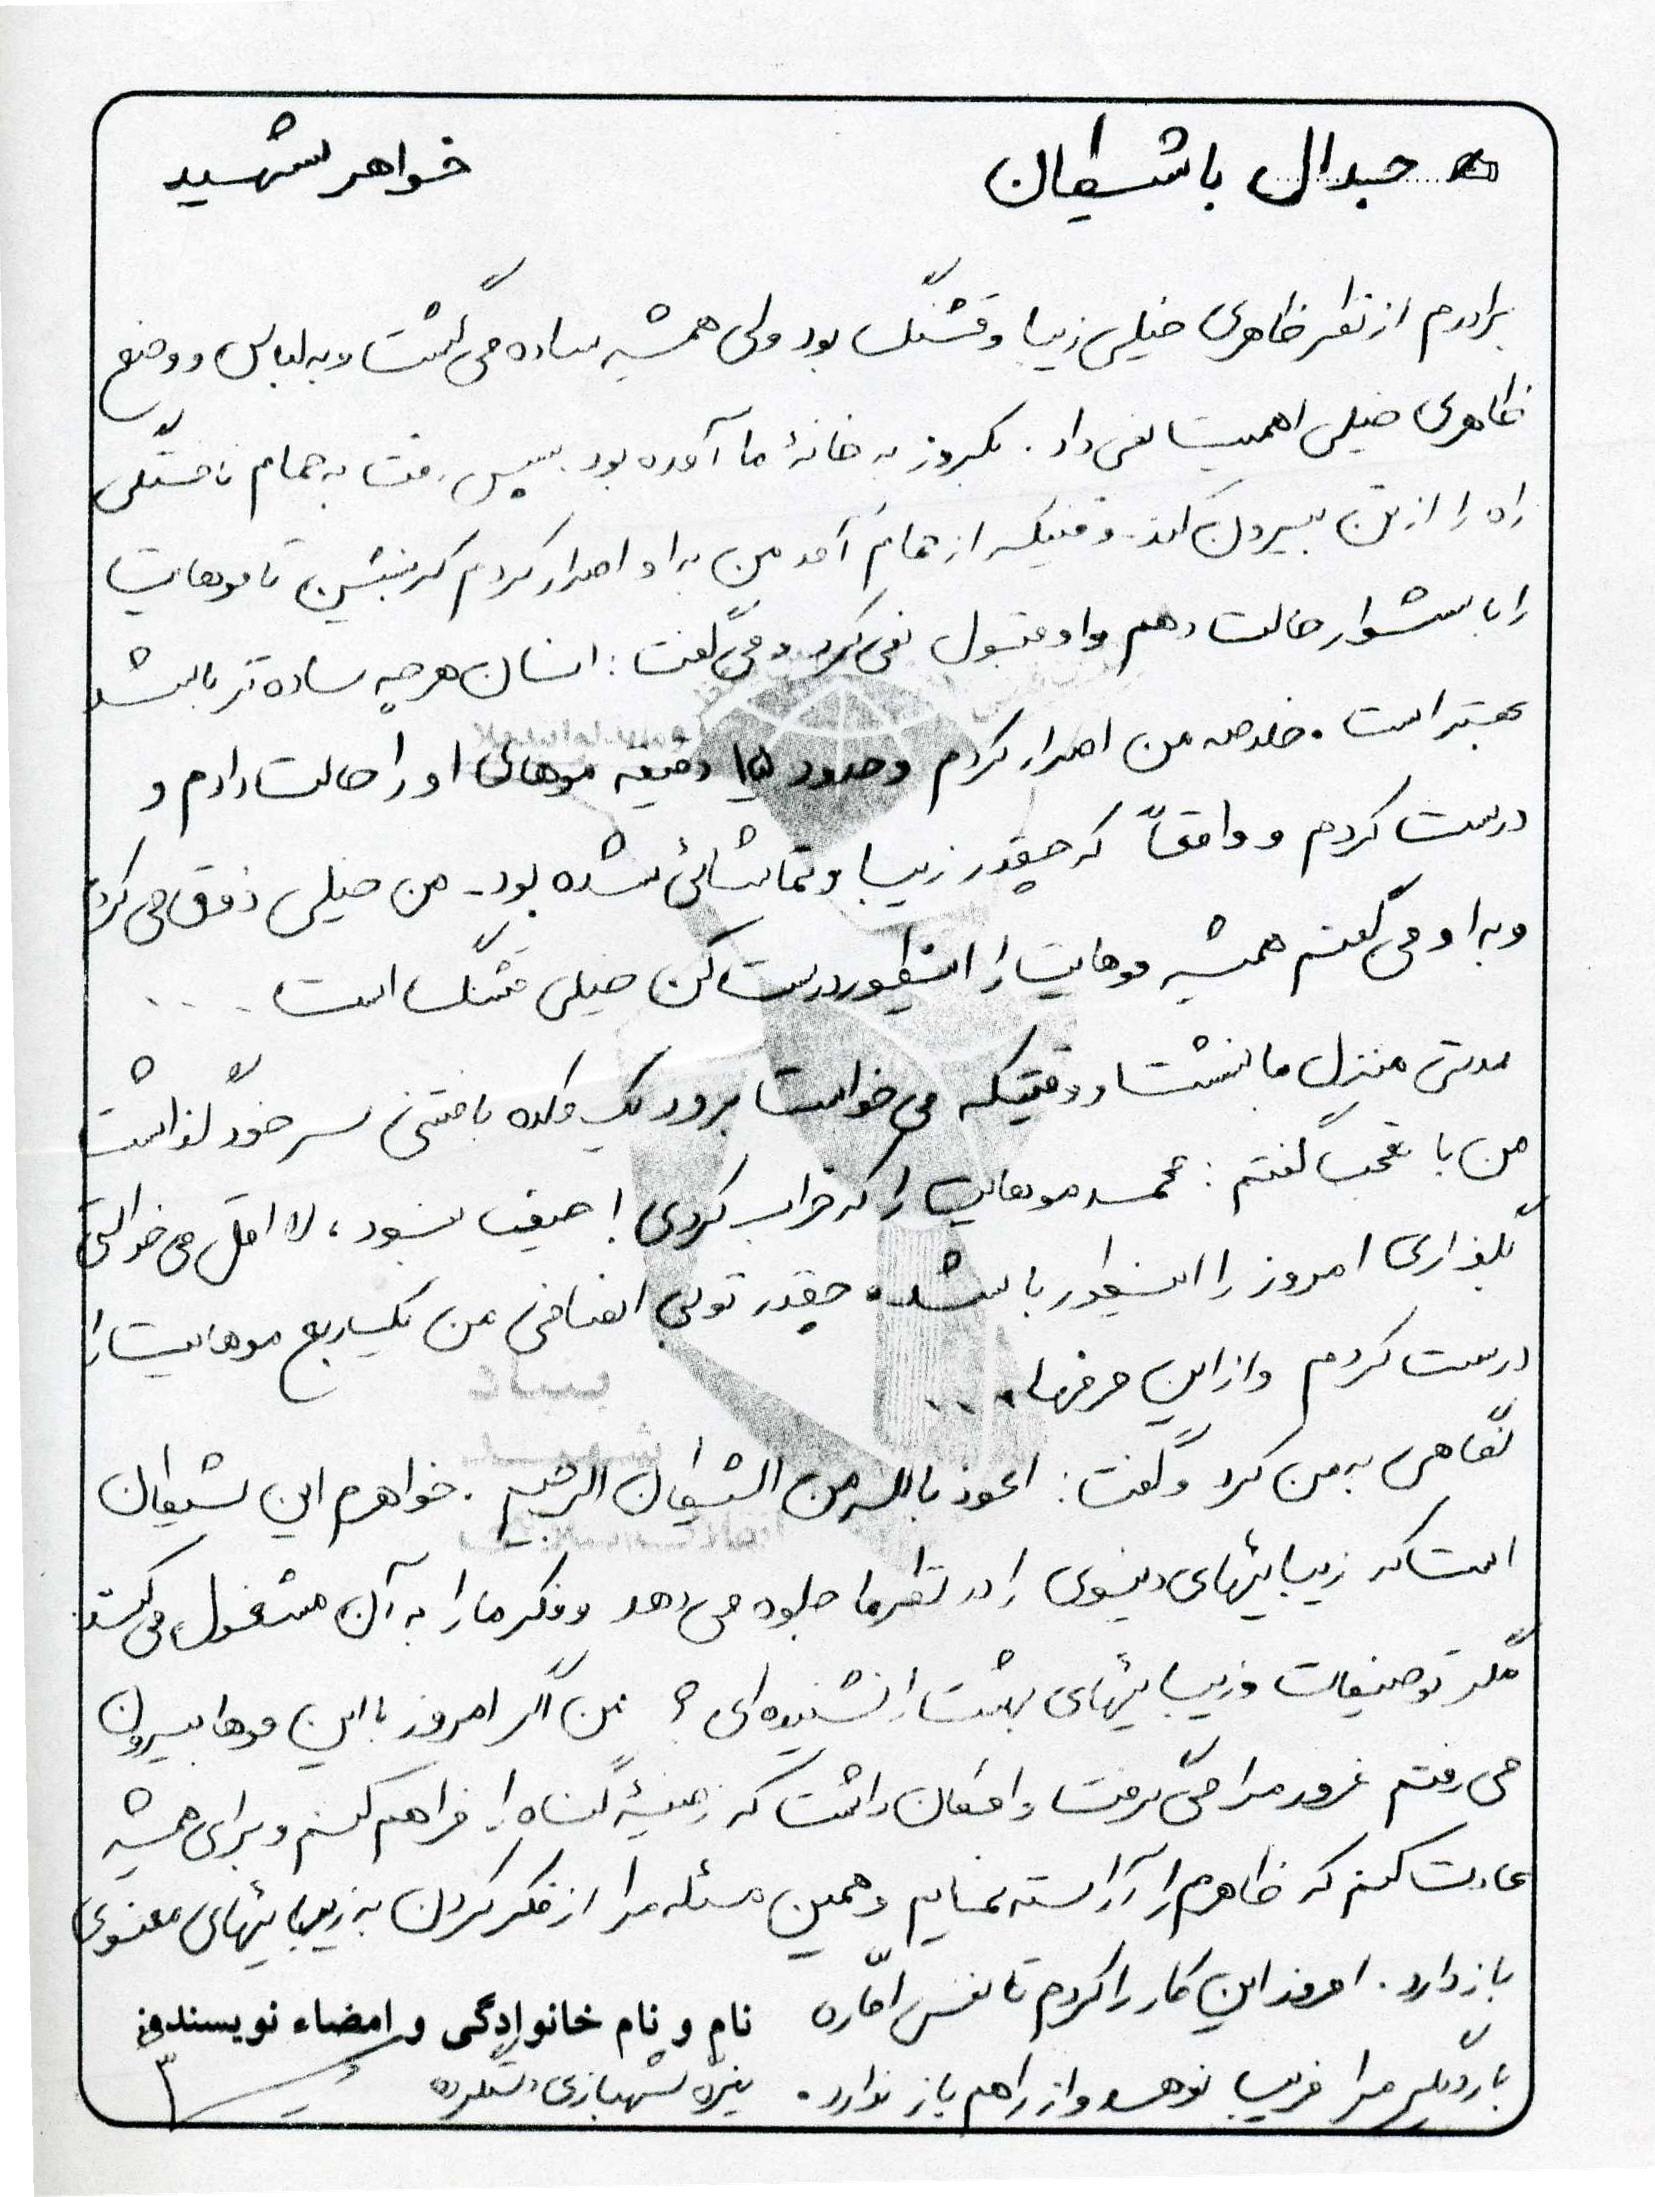 جدال با شیطان
خواهر شهید
برادرم از نظر ظاهری خیلی زیبا و قشنگ بود ولی همیشه ساده می گشت و به لباس و وضع
ظاهری خیلی اهمیت نمی داد. یکروز به خانهٔ ما آمده بود. سپس رفت به حمام تا خستگی
راه را از تن بیرون کند. وقتیکه از حمام آمد من به او اصرار کردم که بنشین تا موهایت
را با سشوار حالت دهم و او قبول نمی کرد و می گفت: انسان هر چه ساده تر باشد
بهتر است. خلاصه من اصرار کردم و حدود ۱۵ دقیقه موهای او را حالت دادم و
درست کردم و واقعاً که چقدر زیبا و تماشائی شده بود. من خیلی ذوق می کردم
و به او می گفتم همیشه موهایت را اینطور درست کن خیلی قشنگ است . . .
مدتی منزل ما بنشست و وقتیکه می خواست برود یک کلاه بافتنی سر خود گذاشت
من با تعجب گفتم: محمد موهایت را که خراب کردی! حیف نبود، لااقل می خواستی
بگذاری امروز را اینطور باشد. چقدر تو بی انصافی من یک ربع موهایت را
درست کردم و از این حرفها. . . .
نگاهی به من کرد و گفت: اعوذ بالله من الشیطان الرجیم. خواهرم این شیطان
است که زیبائیهای دنیوی را در نظر ما جلوه می دهد و فکر ما را به آن مشغول می کند
مگر توصیفات و زیبائیهای بهشت را نشنیده ای؟ من اگر امروز با این موها بیرون
می رفتم غرور مرا می گرفت و امکان داشت که زمینهٔ گناه را فراهم کنم و برای همیشه
عادت کنم که ظاهرم را آراسته نمایم و همین مسئله مرا از فکر کردن به زیبائیهای معنوی
باز دارد. امروز این کار را کردم تا نفس امّاره
بار دیگر مرا فریب ندهد و از راهم باز ندارد.
نام و نام خانوادگی و امضاء نویسنده:
شهبازی دستگرده